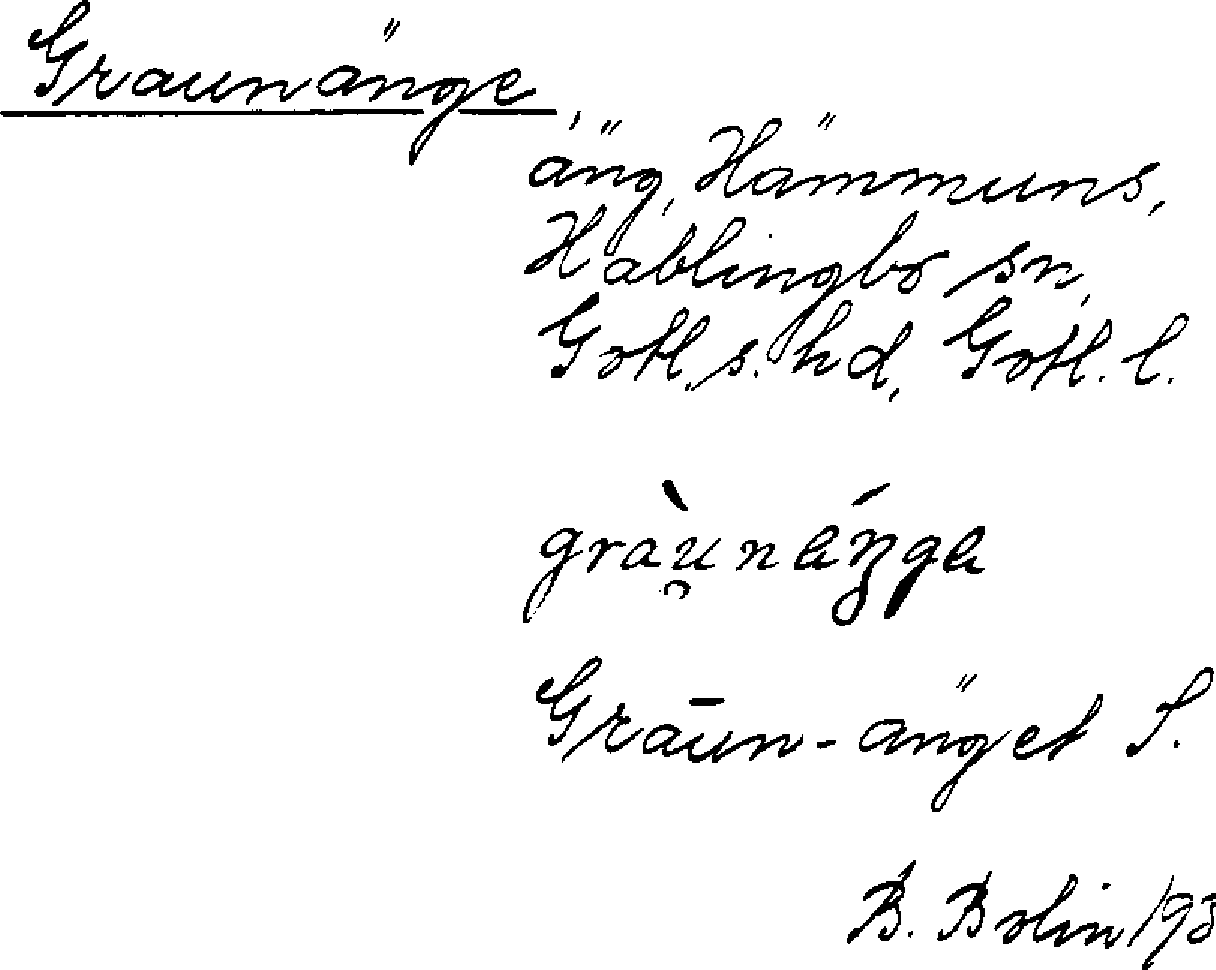 Graunänge
äng, Hämmuns,
Hablingbo sn,
Gotl. s. hd, Gotl. l.
gràu̯nénge
Graūn-änget S.
B. Bolin 193